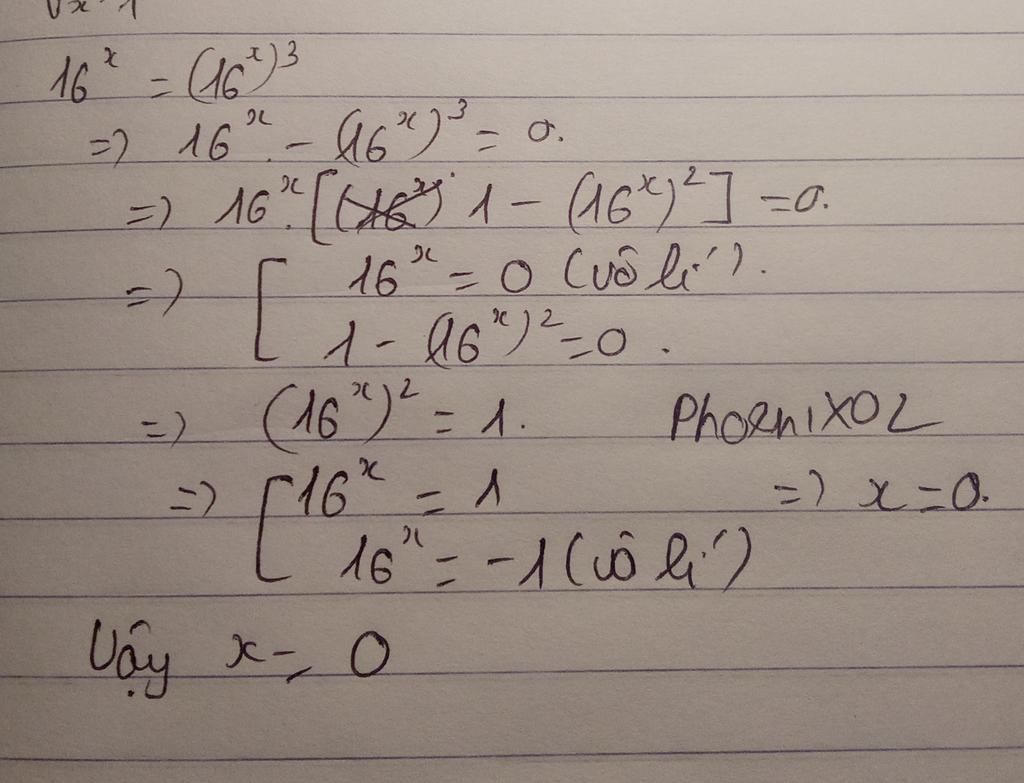 16^x = (16^x)^3
=) 16^x. - (16^x)^3 = 0.
=) 16^x. [ 1 - (16^x)^2 ] = 0.
=) [ 16^x = 0 (vô lí).
1 - (16^x)^2 = 0.
=) (16^x)^2 = 1. PhoeniXOL
=) [ 16^x = 1 =) x = 0.
16^x = -1 (vô lí)
Vậy x = 0